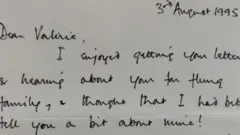 3rd August 1995
Dear Valerie,
I enjoyed getting your letter
& hearing about your far flung
family, & thought that I had bet
tell you a bit about mine!